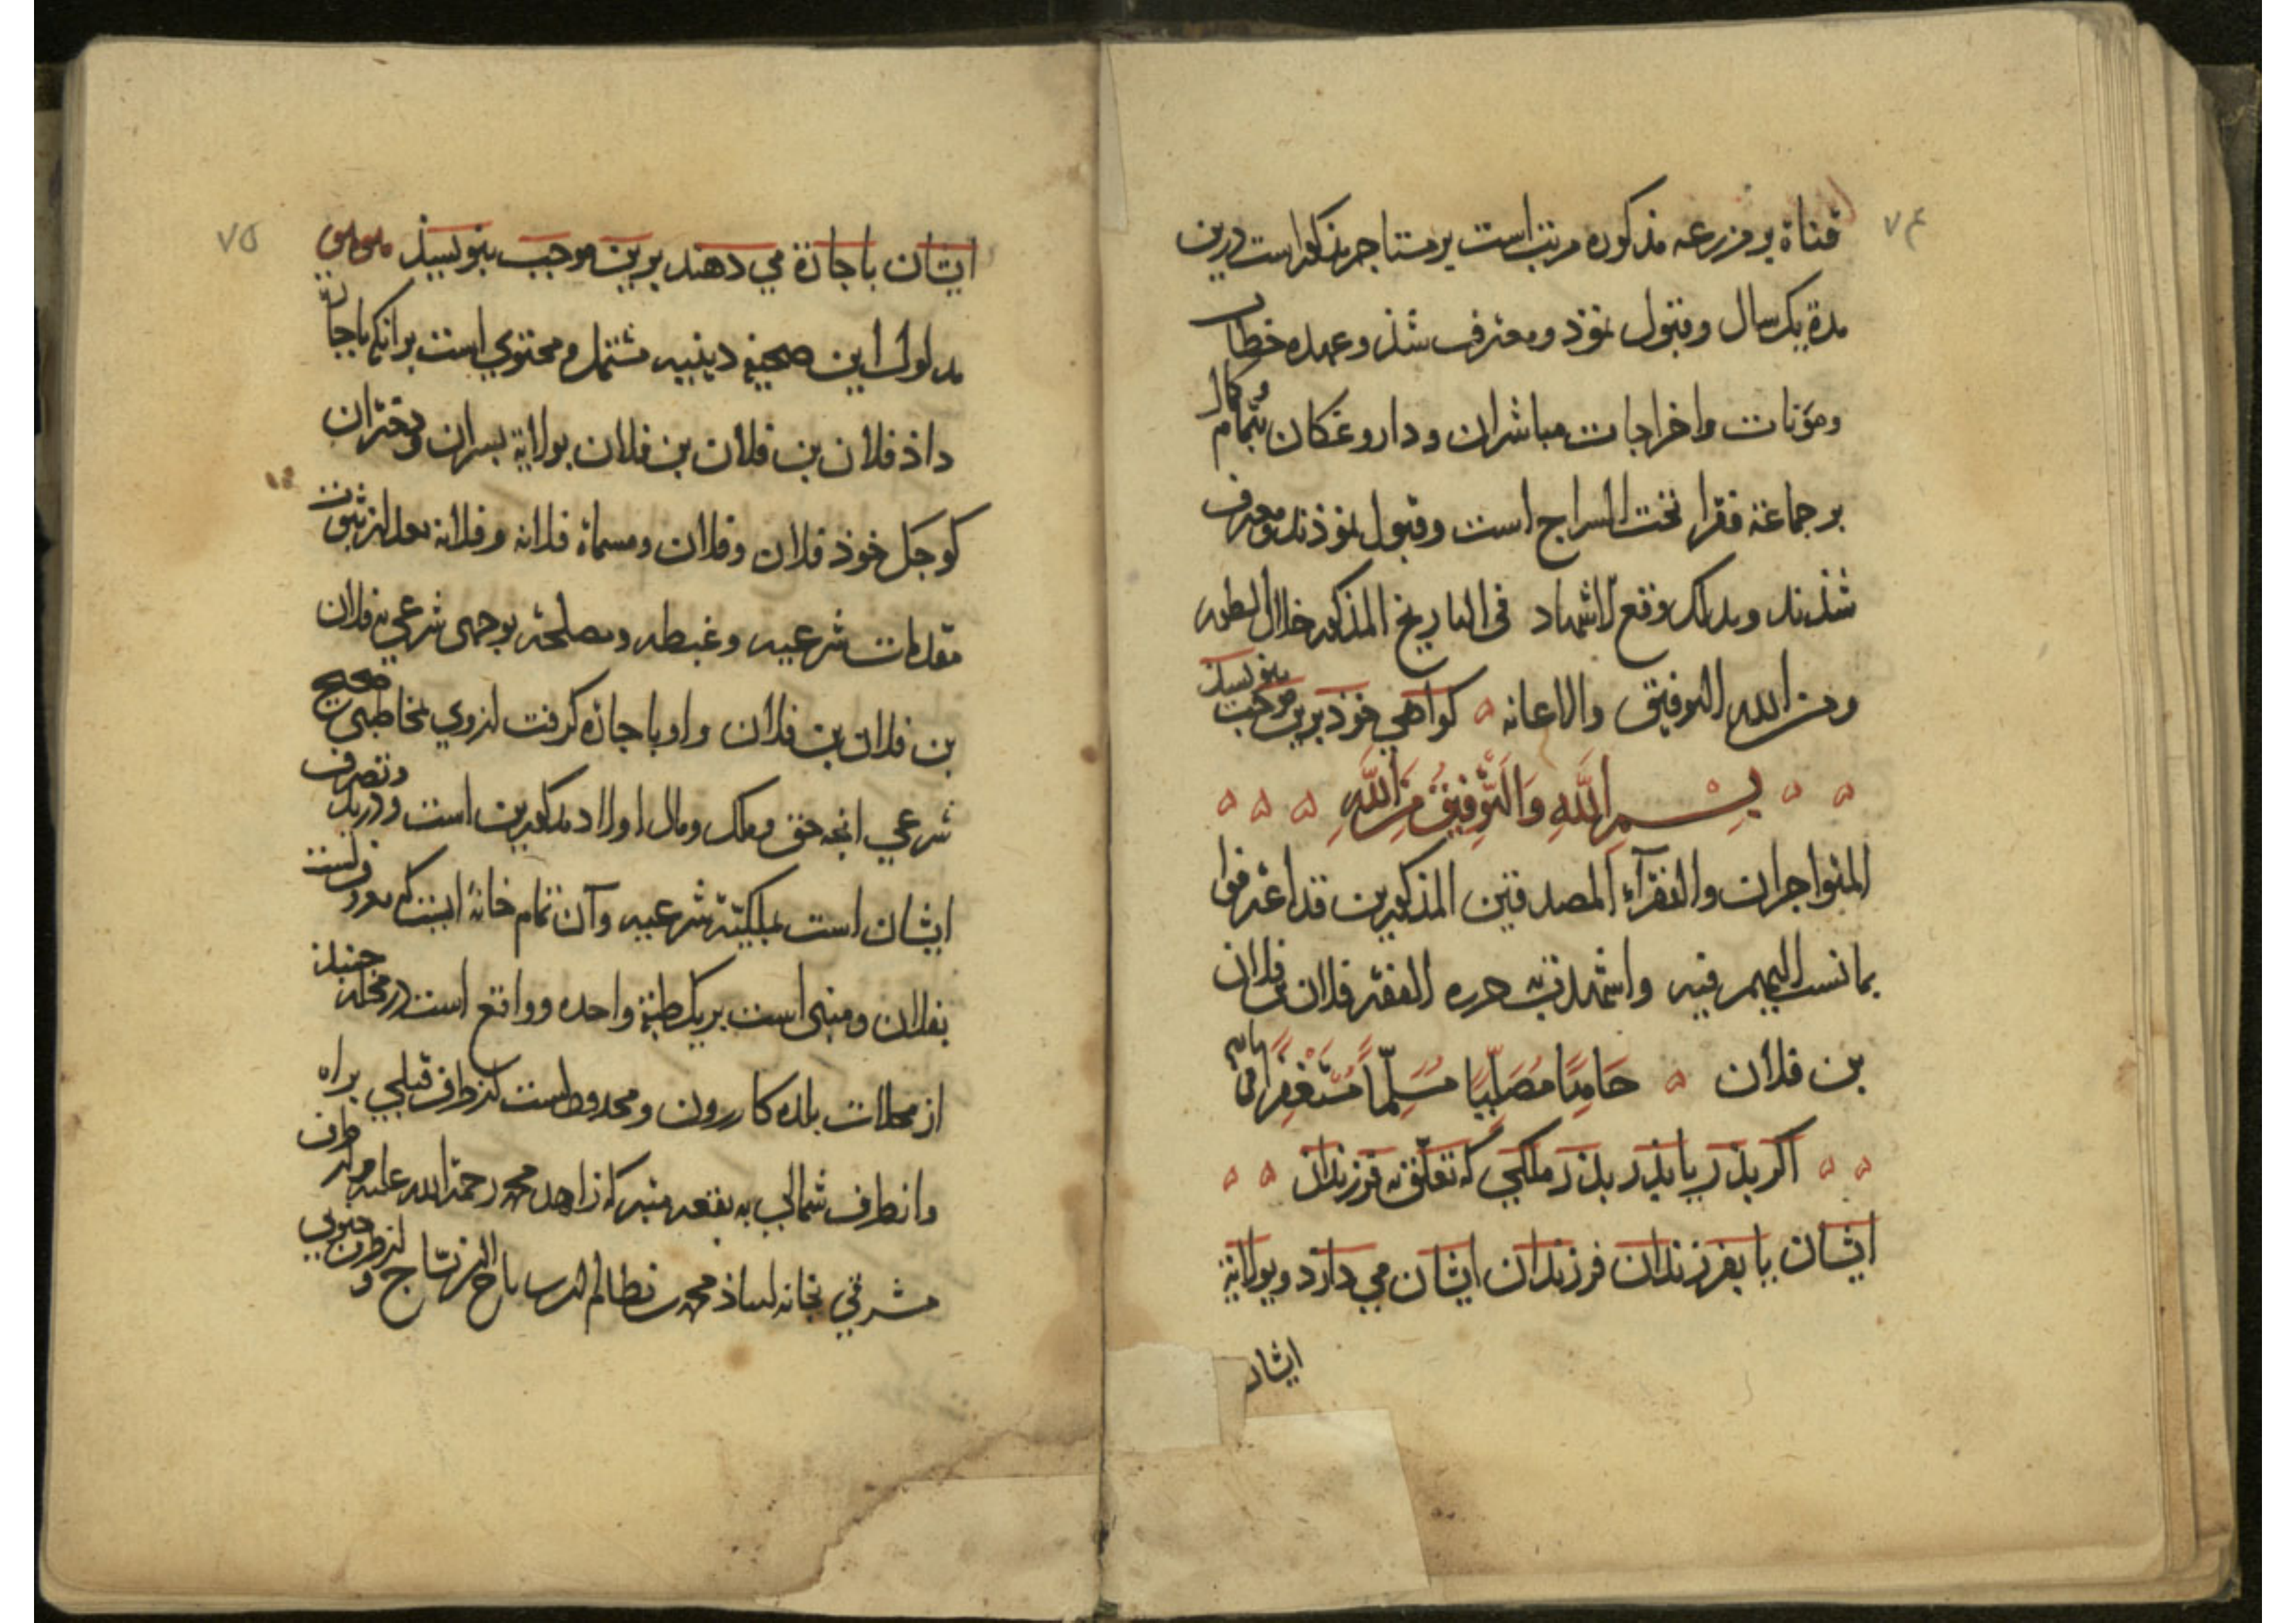 ۷۴
قناة بر مزرعه مذکوره مرتب است بر مستاجر مذکور است درین
مدة یک سال و قبول نمود و معترف شذ و عهده خطاب
و مؤنات و اخراجات مباشران و داروغکان بتمام و کمال
بر جماعة فقرا تحت السراج است و قبول نموذند و معترف
شذند و بذلک وقع الاشهاد فی التاریخ المذکور خلال السطور
و من الله التوفیق والاعانه کواهی خوذ برین موجب بنویسیذ
بِسْمِ اللّهِ وَالتَّوفِیقُ مِنَ اللّهِ
المتواجران والفقرآء المصدقین المذکورین قد اعترفوا
بما نسب الیهم فیه واشهدت به حرره الفقیر فلان بن فلان
بن فلان حَامِدًا مُصَلِّیًا مُسَلِّمًا مُسْتَغْفِرًا
اکر بذر یا بذر بذر ملکی که تعلق به فرزندان
ایشان یا بفرزندان فرزندان ایشان می دارد و بولایة
ایشان
۷۵
ایشان باجازة می دهند برین موجب بنویسیذ
مدلول این صحیفه دینیه مشتمل و محتوی است بر انکه باجازة
داذ فلان بن فلان بن فلان بولایة بسران و دختران
کوجک خوذ فلان و فلان و مسماة فلانه و فلانه بعد از ثبوت
مقدمات شرعیه و غبطه و مصلحة بوجهی شرعی به فلان
بن فلان بن فلان و او باجازه کرفت از وی بمخاطبی صحیح
شرعی انجه حق و ملک و مال اولاد مذکورین است و در ید و تصرف
ایشان است بملکیة شرعیه و آن تمام خانۀ ایست که معروفست
بفلان و مبنی است بر یک طبقة واحده و واقع است در محله جنبذ
از محلات بلده کازرون و محدوداست از طرف قبلی براه
و از طرف شمالی به بقعه منبرکه زاهد محمد رحمة الله علیه و از طرف
شرقی بخانه استاذ محمد بن نظام الدین تاج النساج و از طرف جنوبی